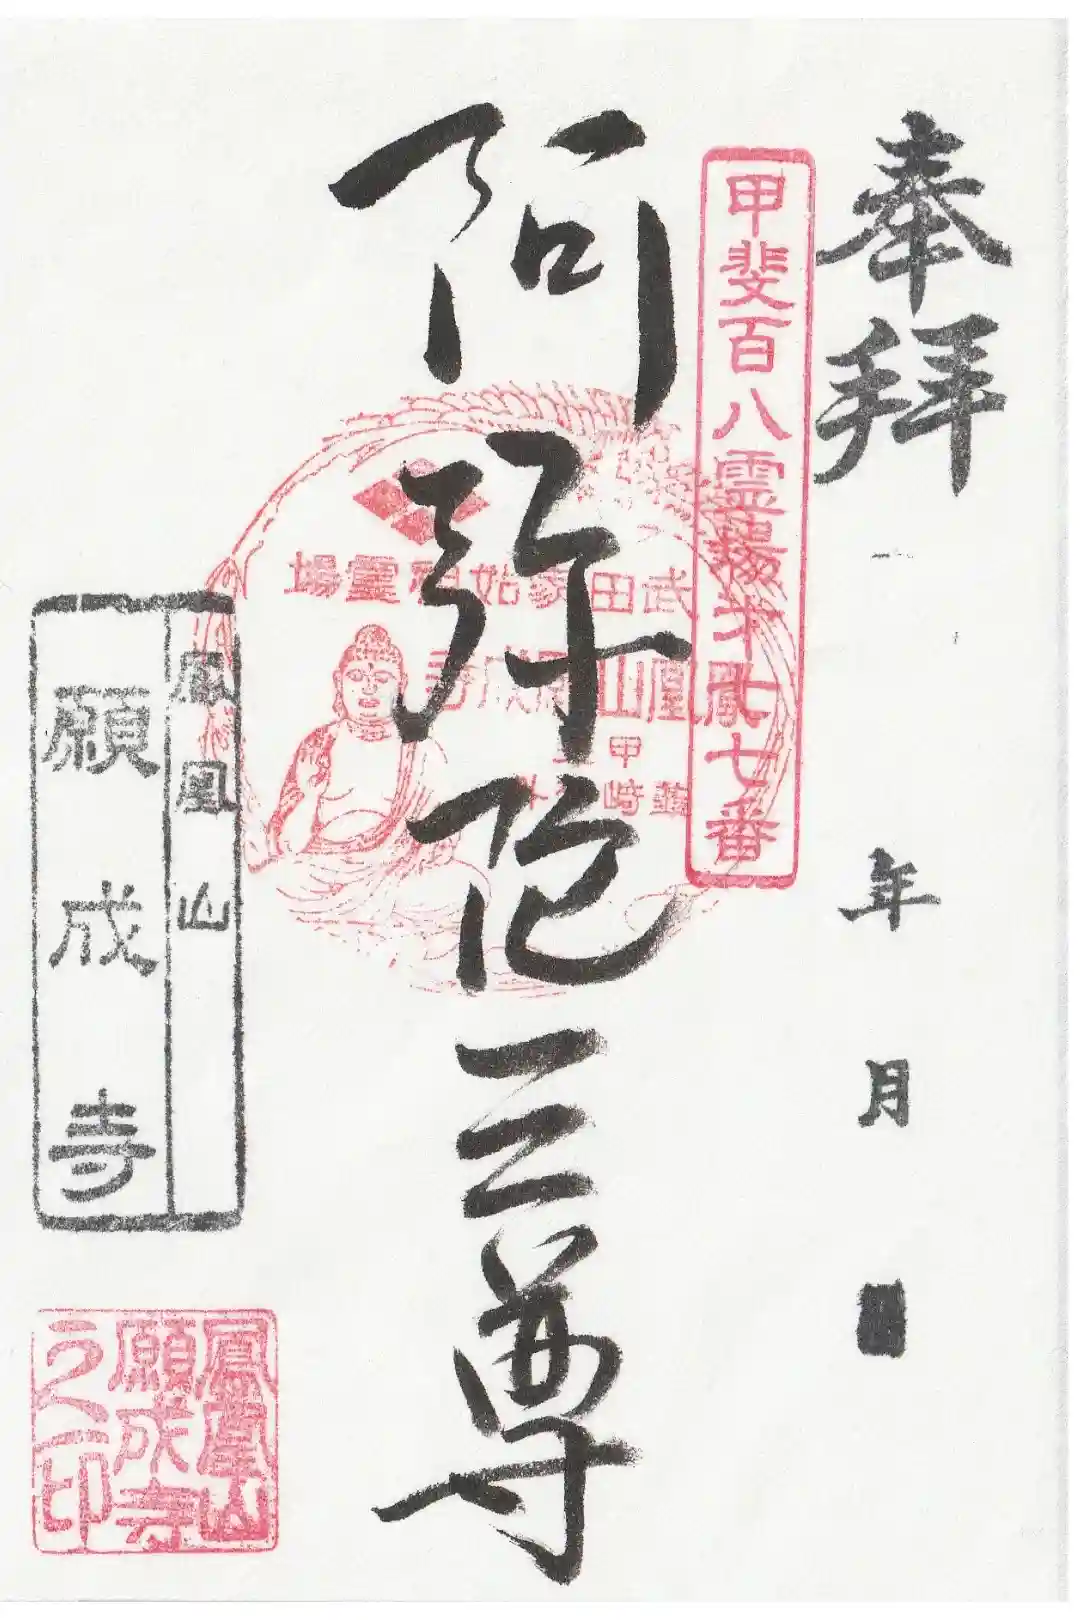 奉拝
年 月 日
甲斐百八霊場
七番
阿弥陀三尊
武田家始祖霊場
鳳凰山願成寺
鳳凰山
願成寺
鳳凰山
願成寺
之印